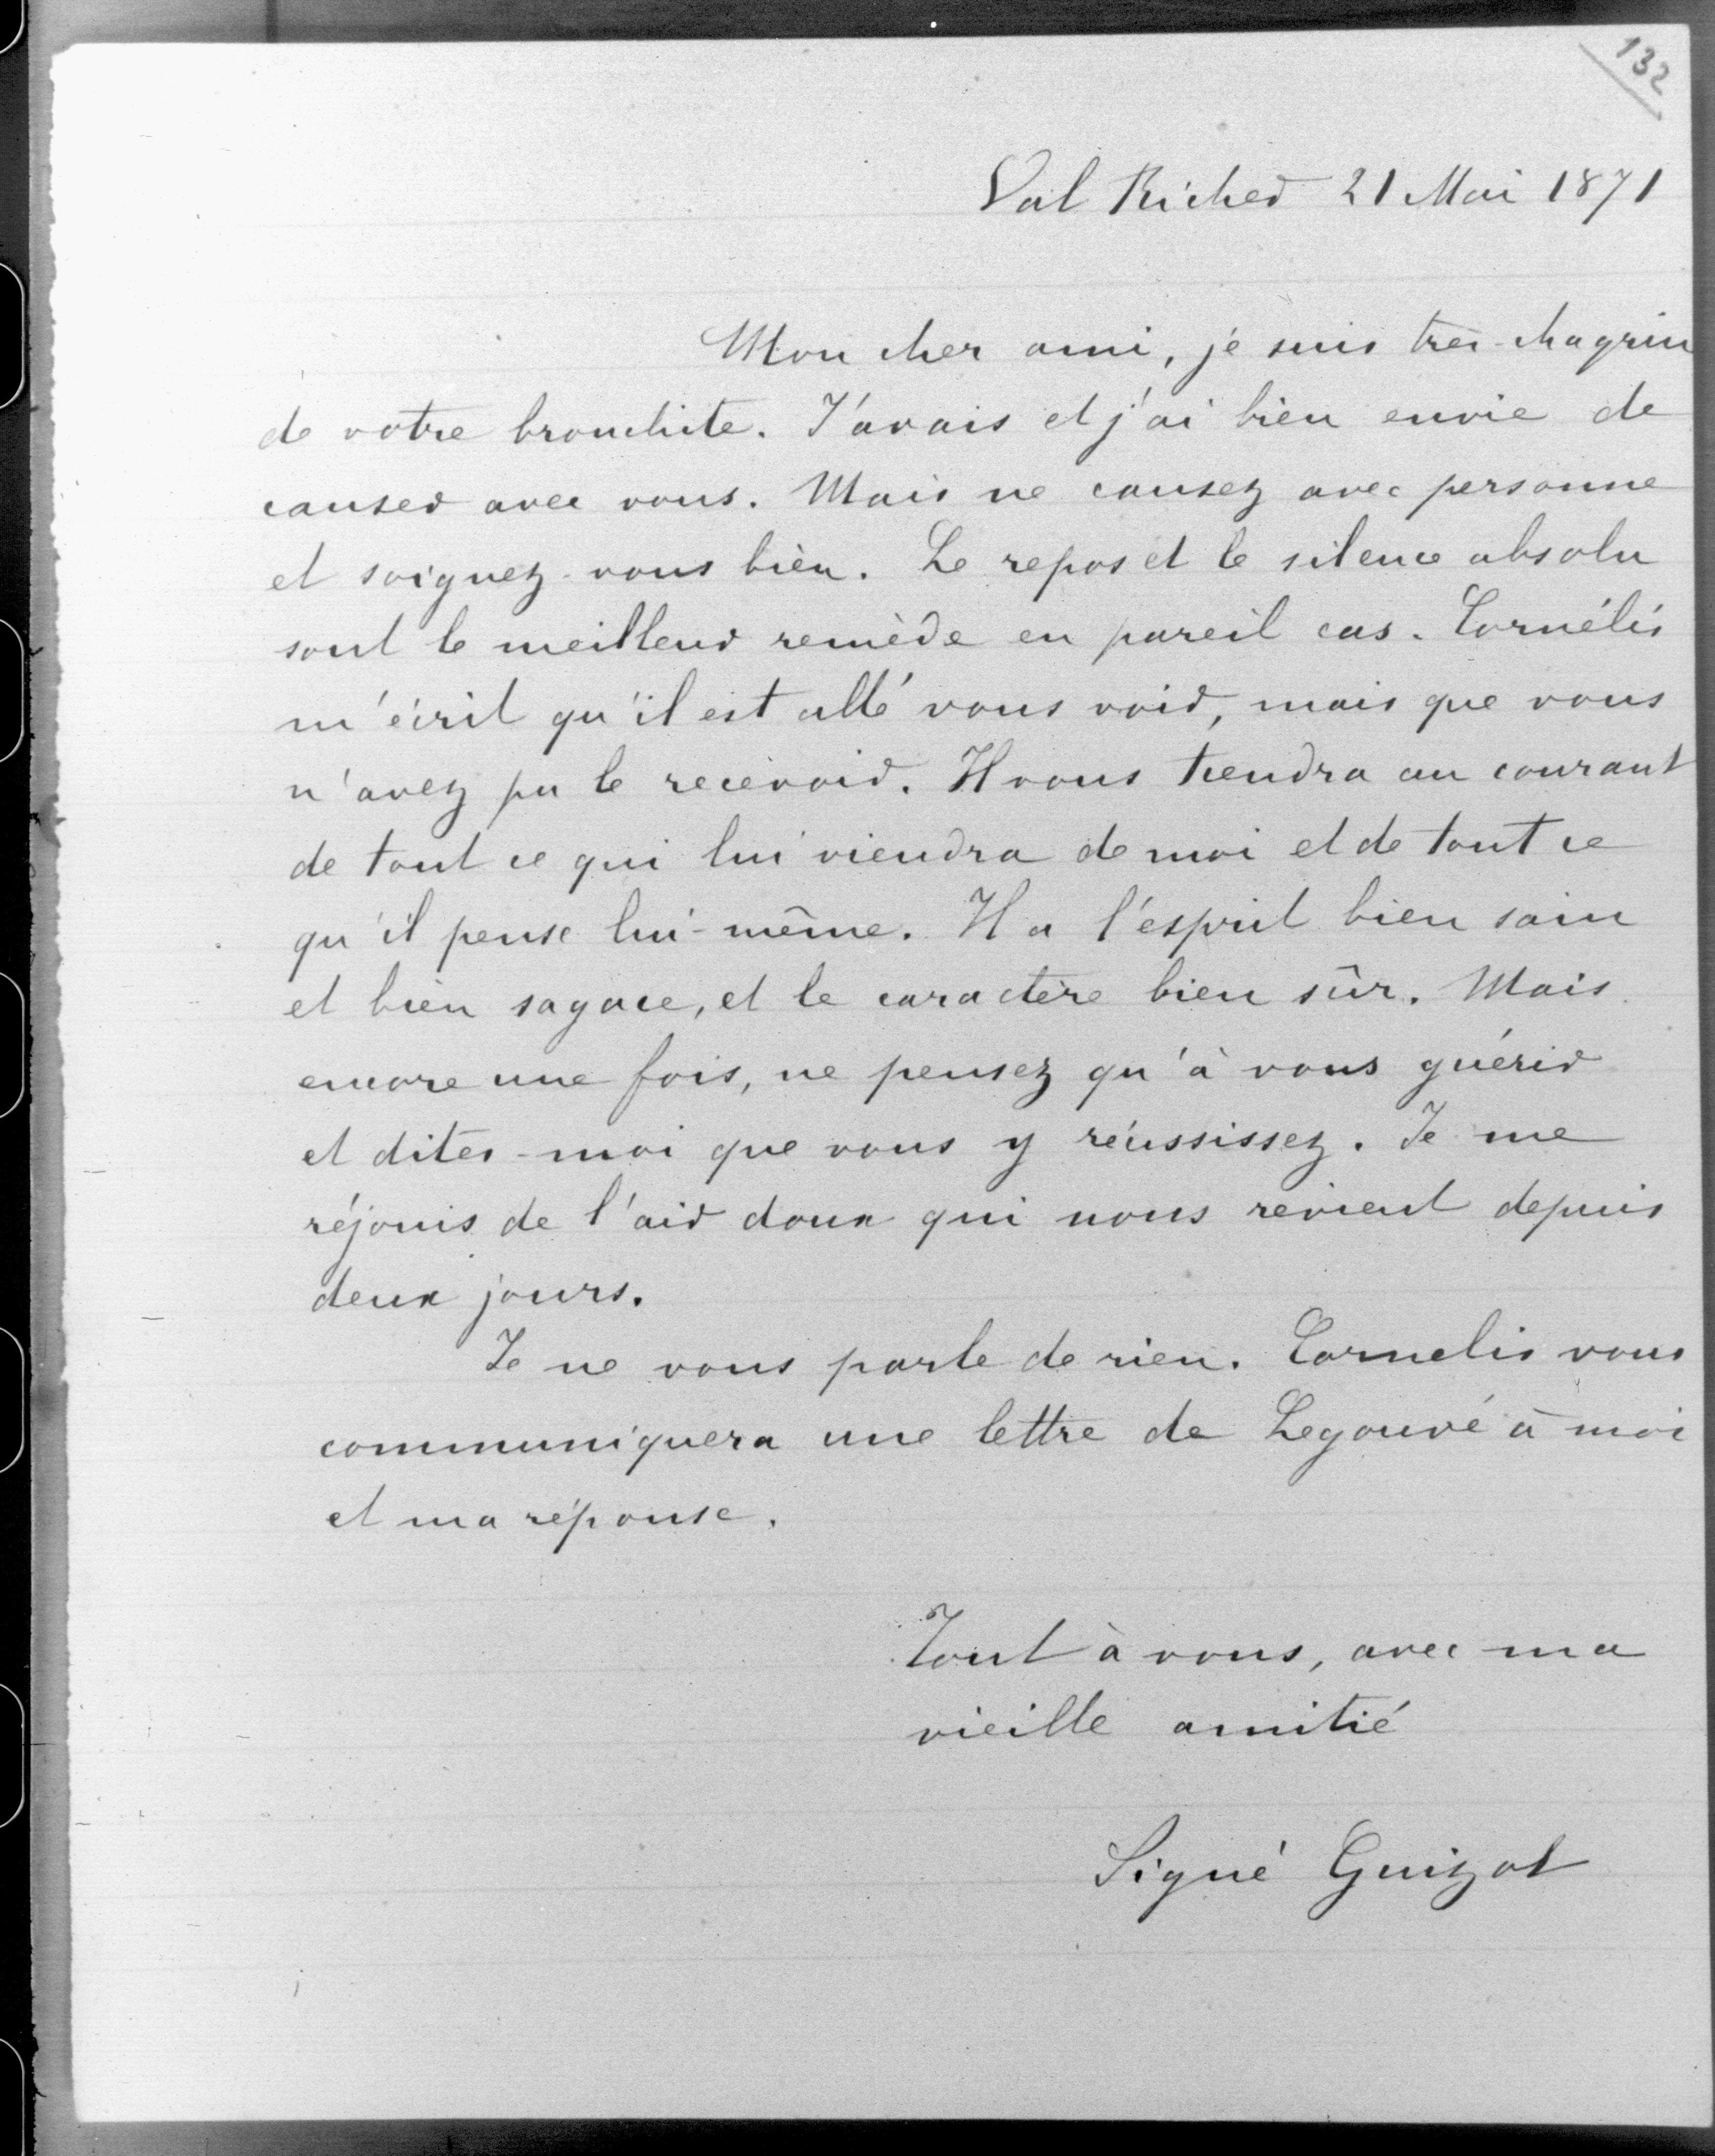 132
Val Richer 21 Mai 1871
Mon cher ami, je suis très-chagrin
de votre bronchite. J'avais et j'ai bien envie de
causer avec vous. Mais ne causez avec personne
et soignez-vous bien. Le repos et le silence absolu
sont le meilleur remède en pareil cas. Cornélis
m'écrit qu'il est allé vous voir, mais que vous
n'avez pu le recevoir. Il vous tiendra au courant
de tout ce qui lui viendra de moi et de tout ce
qu'il pense lui-même. Il a l'esprit bien sain
et bien sagace, et le caractère bien sûr. Mais
encore une fois, ne pensez qu'à vous guérir
et dites-moi que vous y réussissez. Je me
réjouis de l'air doux qui nous revient depuis
deux jours.
Je ne vous parle de rien. Cornelis vous
communiquera une lettre de Legouvé à moi
et ma réponse.
Tout à vous, avec ma
vieille amitié
Signé Guizot